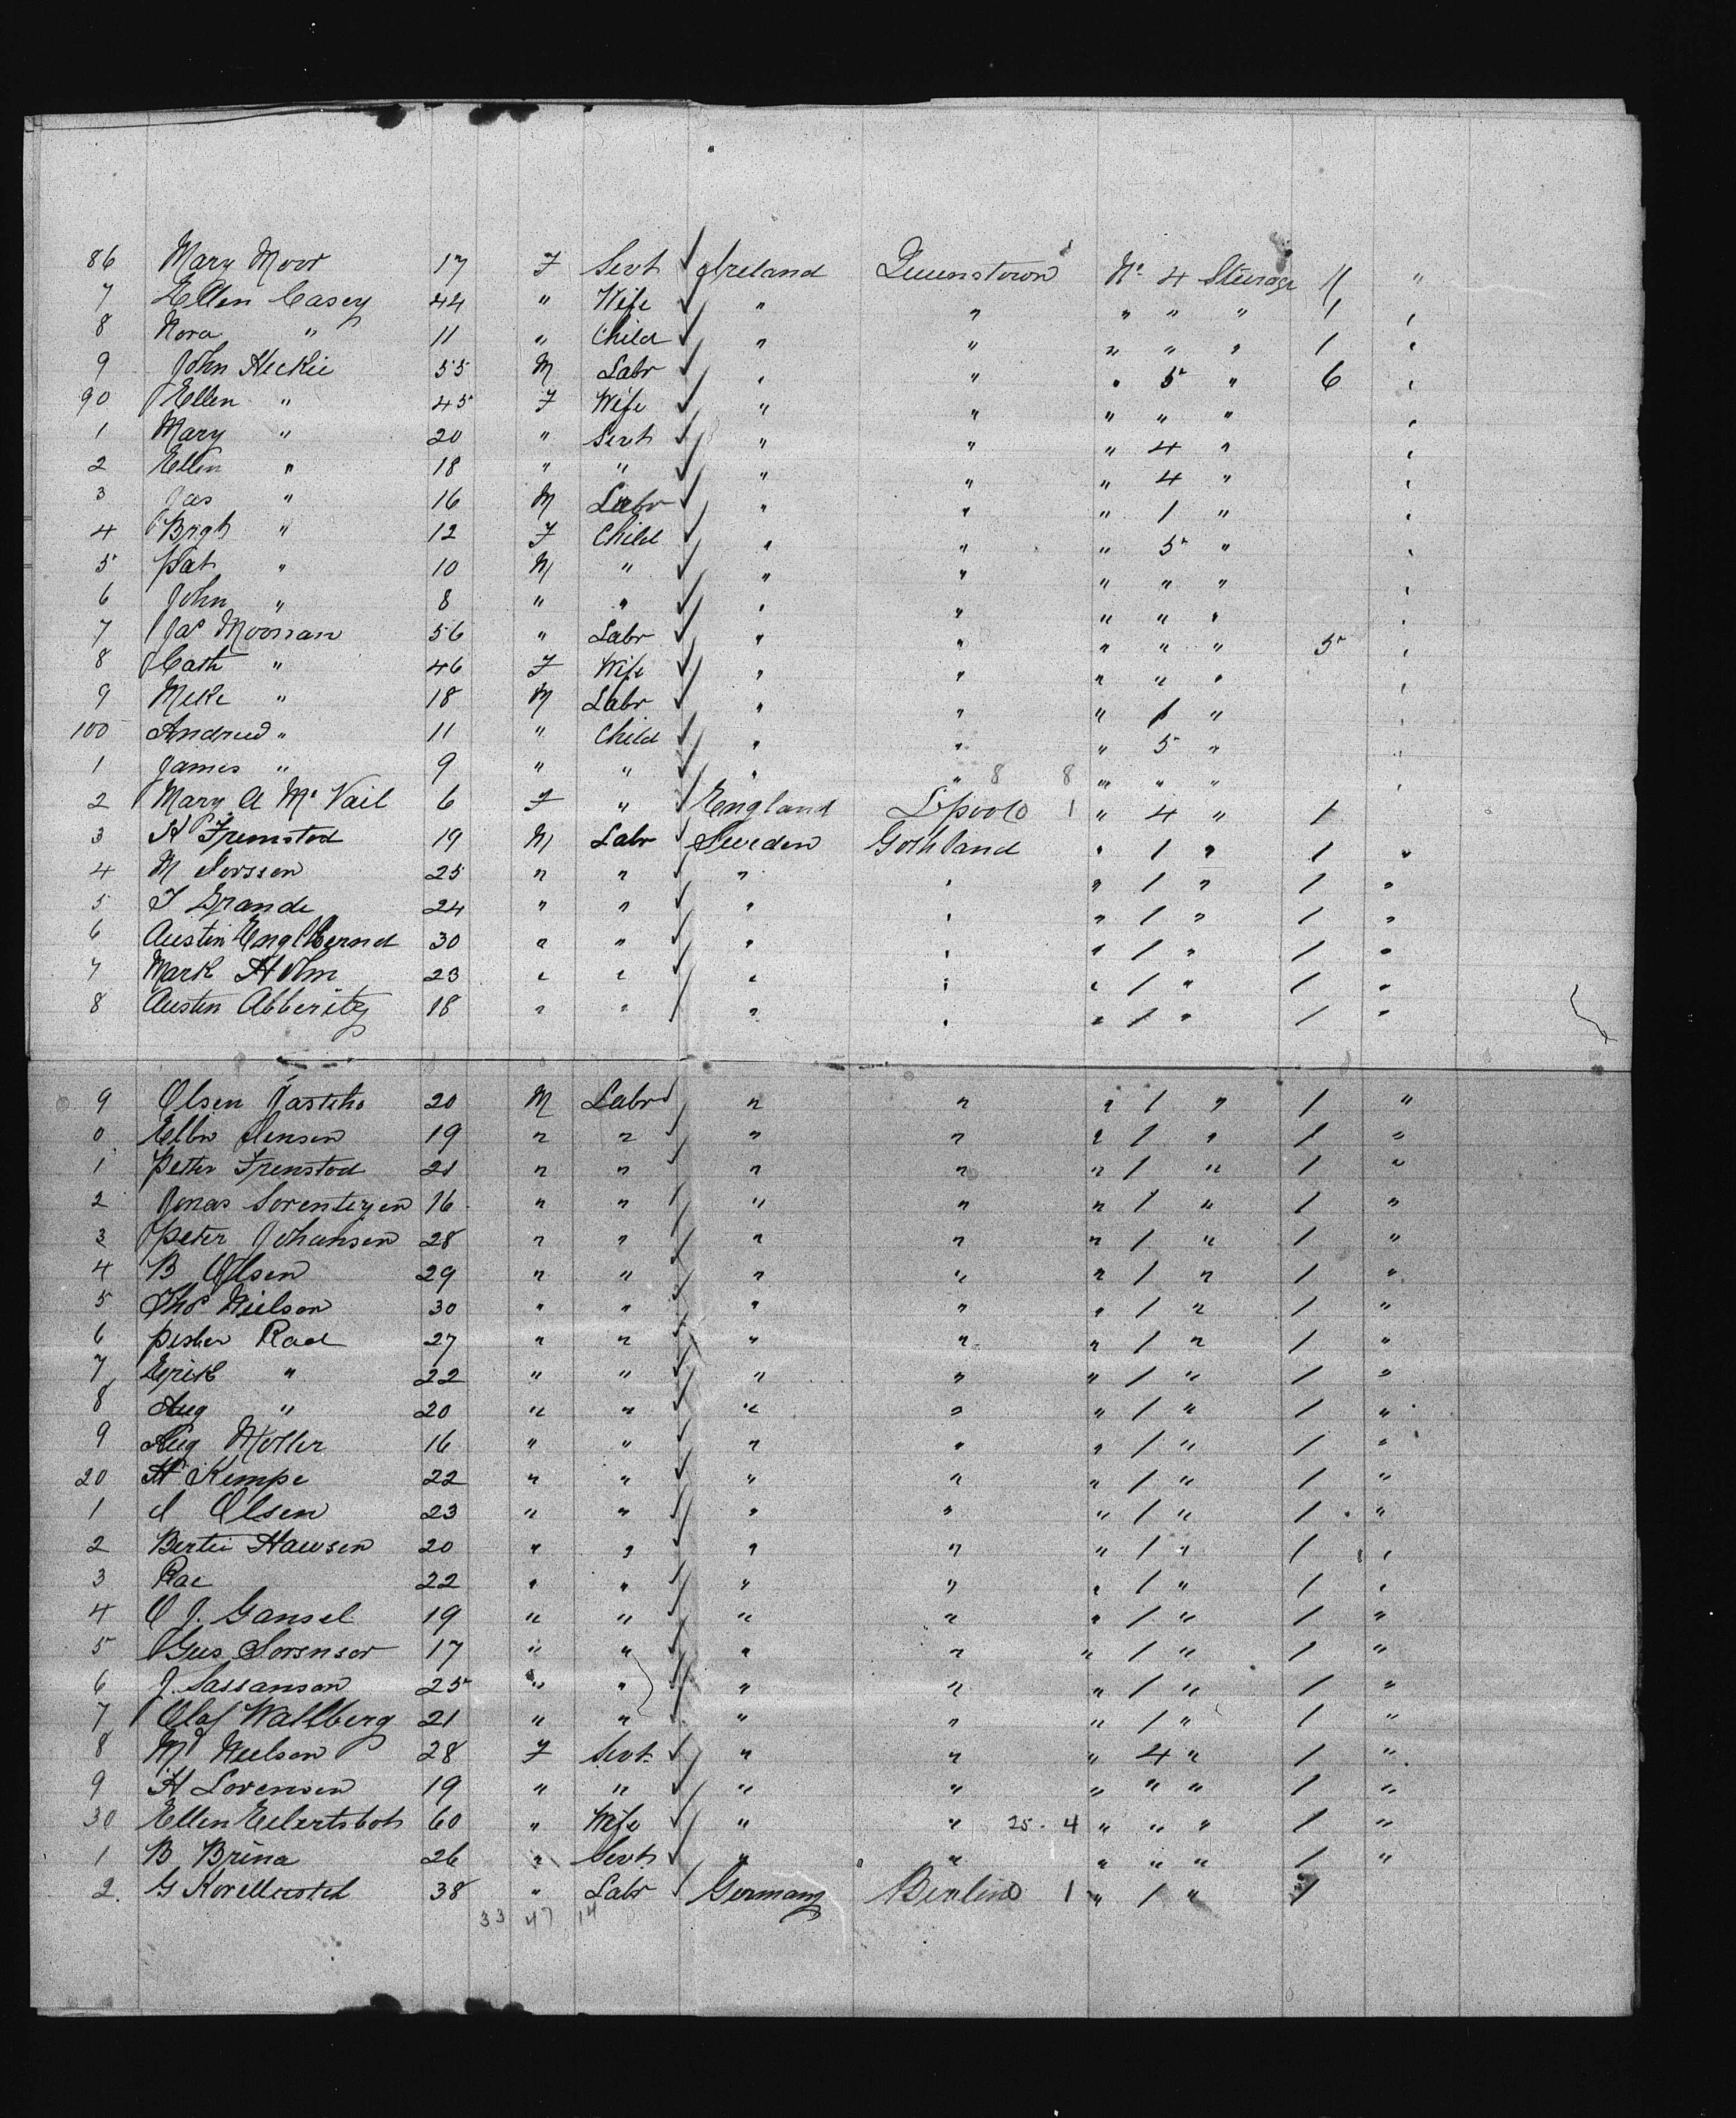 86 Mary Moor 17 F Servt Ireland Queenstown No 4 Steerage 1 "
7 Ellen Casey 44 " Wife " " " " " 1 "
8 Nora " 11 " Child " " " " " 1 "
9 John Heckie 55 M Labr " " " 5 " 6 "
90 Ellen " 45 F Wife " " " " " "
1 Mary " 20 " Servt " " " 4 " "
2 Ellen " 18 " " " " " 4 " "
3 Jas " 16 M Labr " " " 1 " "
4 Brigh " 12 F Child " " " 5 " "
5 Pat " 10 M " " " " " " "
6 John " 8 " " " " " " " "
7 Jas Moonan 56 " Labr " " " " " 5 "
8 Cath " 46 F Wife " " " " " "
9 Mike " 18 M Labr " " " 1 " "
100 Andrew " 11 " Child " " " 5 " "
1 James " 9 " " " " 8 8 " " " "
2 Mary A Mc Vail 6 F " England Lpool 0 1 " 4 " 1
3 H Fremstod 19 M Labr Sweden Gothland " 1 " 1 "
4 M Sorssen 25 " " " " " 1 " 1 "
5 J Grande 24 " " " " " 1 " 1 "
6 Austin 30 " " " " " 1 " 1 "
7 Mark Holm 23 " " " " " 1 " 1 "
8 Austin Abberitz 18 " " " " " 1 " 1 "
9 Olsen 20 M Labr " " " 1 " 1 "
0 Jensen 19 " " " " " 1 " 1 "
1 Peter Frenstod 21 " " " " " 1 " 1 "
2 Jonas 16 " " " " " 1 " 1 "
3 Peter Johansen 28 " " " " " 1 " 1 "
4 B Olsen 29 " " " " " 1 " 1 "
5 Thos Nielson 30 " " " " " 1 " 1 "
6 Peter Rad 27 " " " " " 1 " 1 "
7 Erik " 22 " " " " " 1 " 1 "
8 Aug " 20 " " " " " 1 " 1 "
9 Aug Moller 16 " " " " " 1 " 1 "
20 H Kempe 22 " " " " " 1 " 1 "
1 Olsen 23 " " " " " 1 " 1 "
2 Bertie Hawsen 20 " " " " " 1 " 1 "
3 Rae 22 " " " " " 1 " 1 "
4 O J. Gansel 19 " " " " " 1 " 1 "
5 Gus Sorensor 17 " " " " " 1 " 1 "
6 J. Sassanson 25 " " " " " 1 " 1 "
7 Olaf Wallberg 21 " " " " " 1 " 1 "
8 M Neelson 28 F Servt " " " 4 " 1 "
9 H Lorensen 19 " " " " " " " 1 "
30 Ellen 60 " Wife " " 25 - 4 " " " 1 "
1 B Brina 26 " Servt " " " " " 1 "
2. G 38 " Labr Germany Berlin 0 1 " 1 " 1
33 47 14